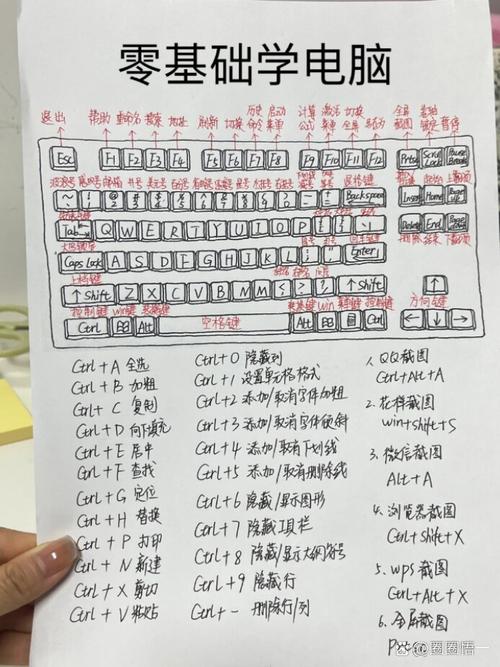 零基础学电脑
退出 帮助 重命名 搜索 地址 刷新 切换 历史命令 启动菜单 计算公式 激活菜单 切换全屏 另存为 全屏截图 暂停
Esc F1 F2 F3 F4 F5 F6 F7 F8 F9 F10 F11 F12 Prtsc Scroll Lock Pause Break
波浪号 井号 美元号 退格键
Backspace Insert Home Page up
Tab Q W E R T Y U I O P Delete End Page Down
删除 结束 下翻页
Caps Lock A S D F G H J K L Enter
上档键
↑ Shift Z X C V B N M ↑ Shift ↑
控制键 win键 空格键 win 控制键 方向键
Ctrl Alt Alt Ctrl ← ↓ →
Ctrl + A 全选
Ctrl + B 加粗
Ctrl + C 复制
Ctrl + D 向下填充
Ctrl + E 居中
Ctrl + F 查找
Ctrl + G 定位
Ctrl + H 替换
Ctrl + P 打印
Ctrl + N 新建
Ctrl + X 剪切
Ctrl + V 粘贴
Ctrl + 0 隐藏列
Ctrl + 1 设置单元格格式
Ctrl + 2 添加/取消字体加粗
Ctrl + 3 添加/取消字体倾斜
Ctrl + 4 添加/取消下划线
Ctrl + 5 添加/取消删除线
Ctrl + 6 隐藏/显示图形
Ctrl + 7 隐藏工具栏
Ctrl + 8 隐藏/显示大纲符号
Ctrl + 9 隐藏行
Ctrl + - 删除行/列
1. QQ截图
Ctrl+Alt+A
2. 花样截图
win+shift+S
3. 微信截图
Alt+A
4. 浏览器截图
Ctrl+Shift+X
5. wps截图
Ctrl+Alt+X
6. 全屏截图
圈圈悟一